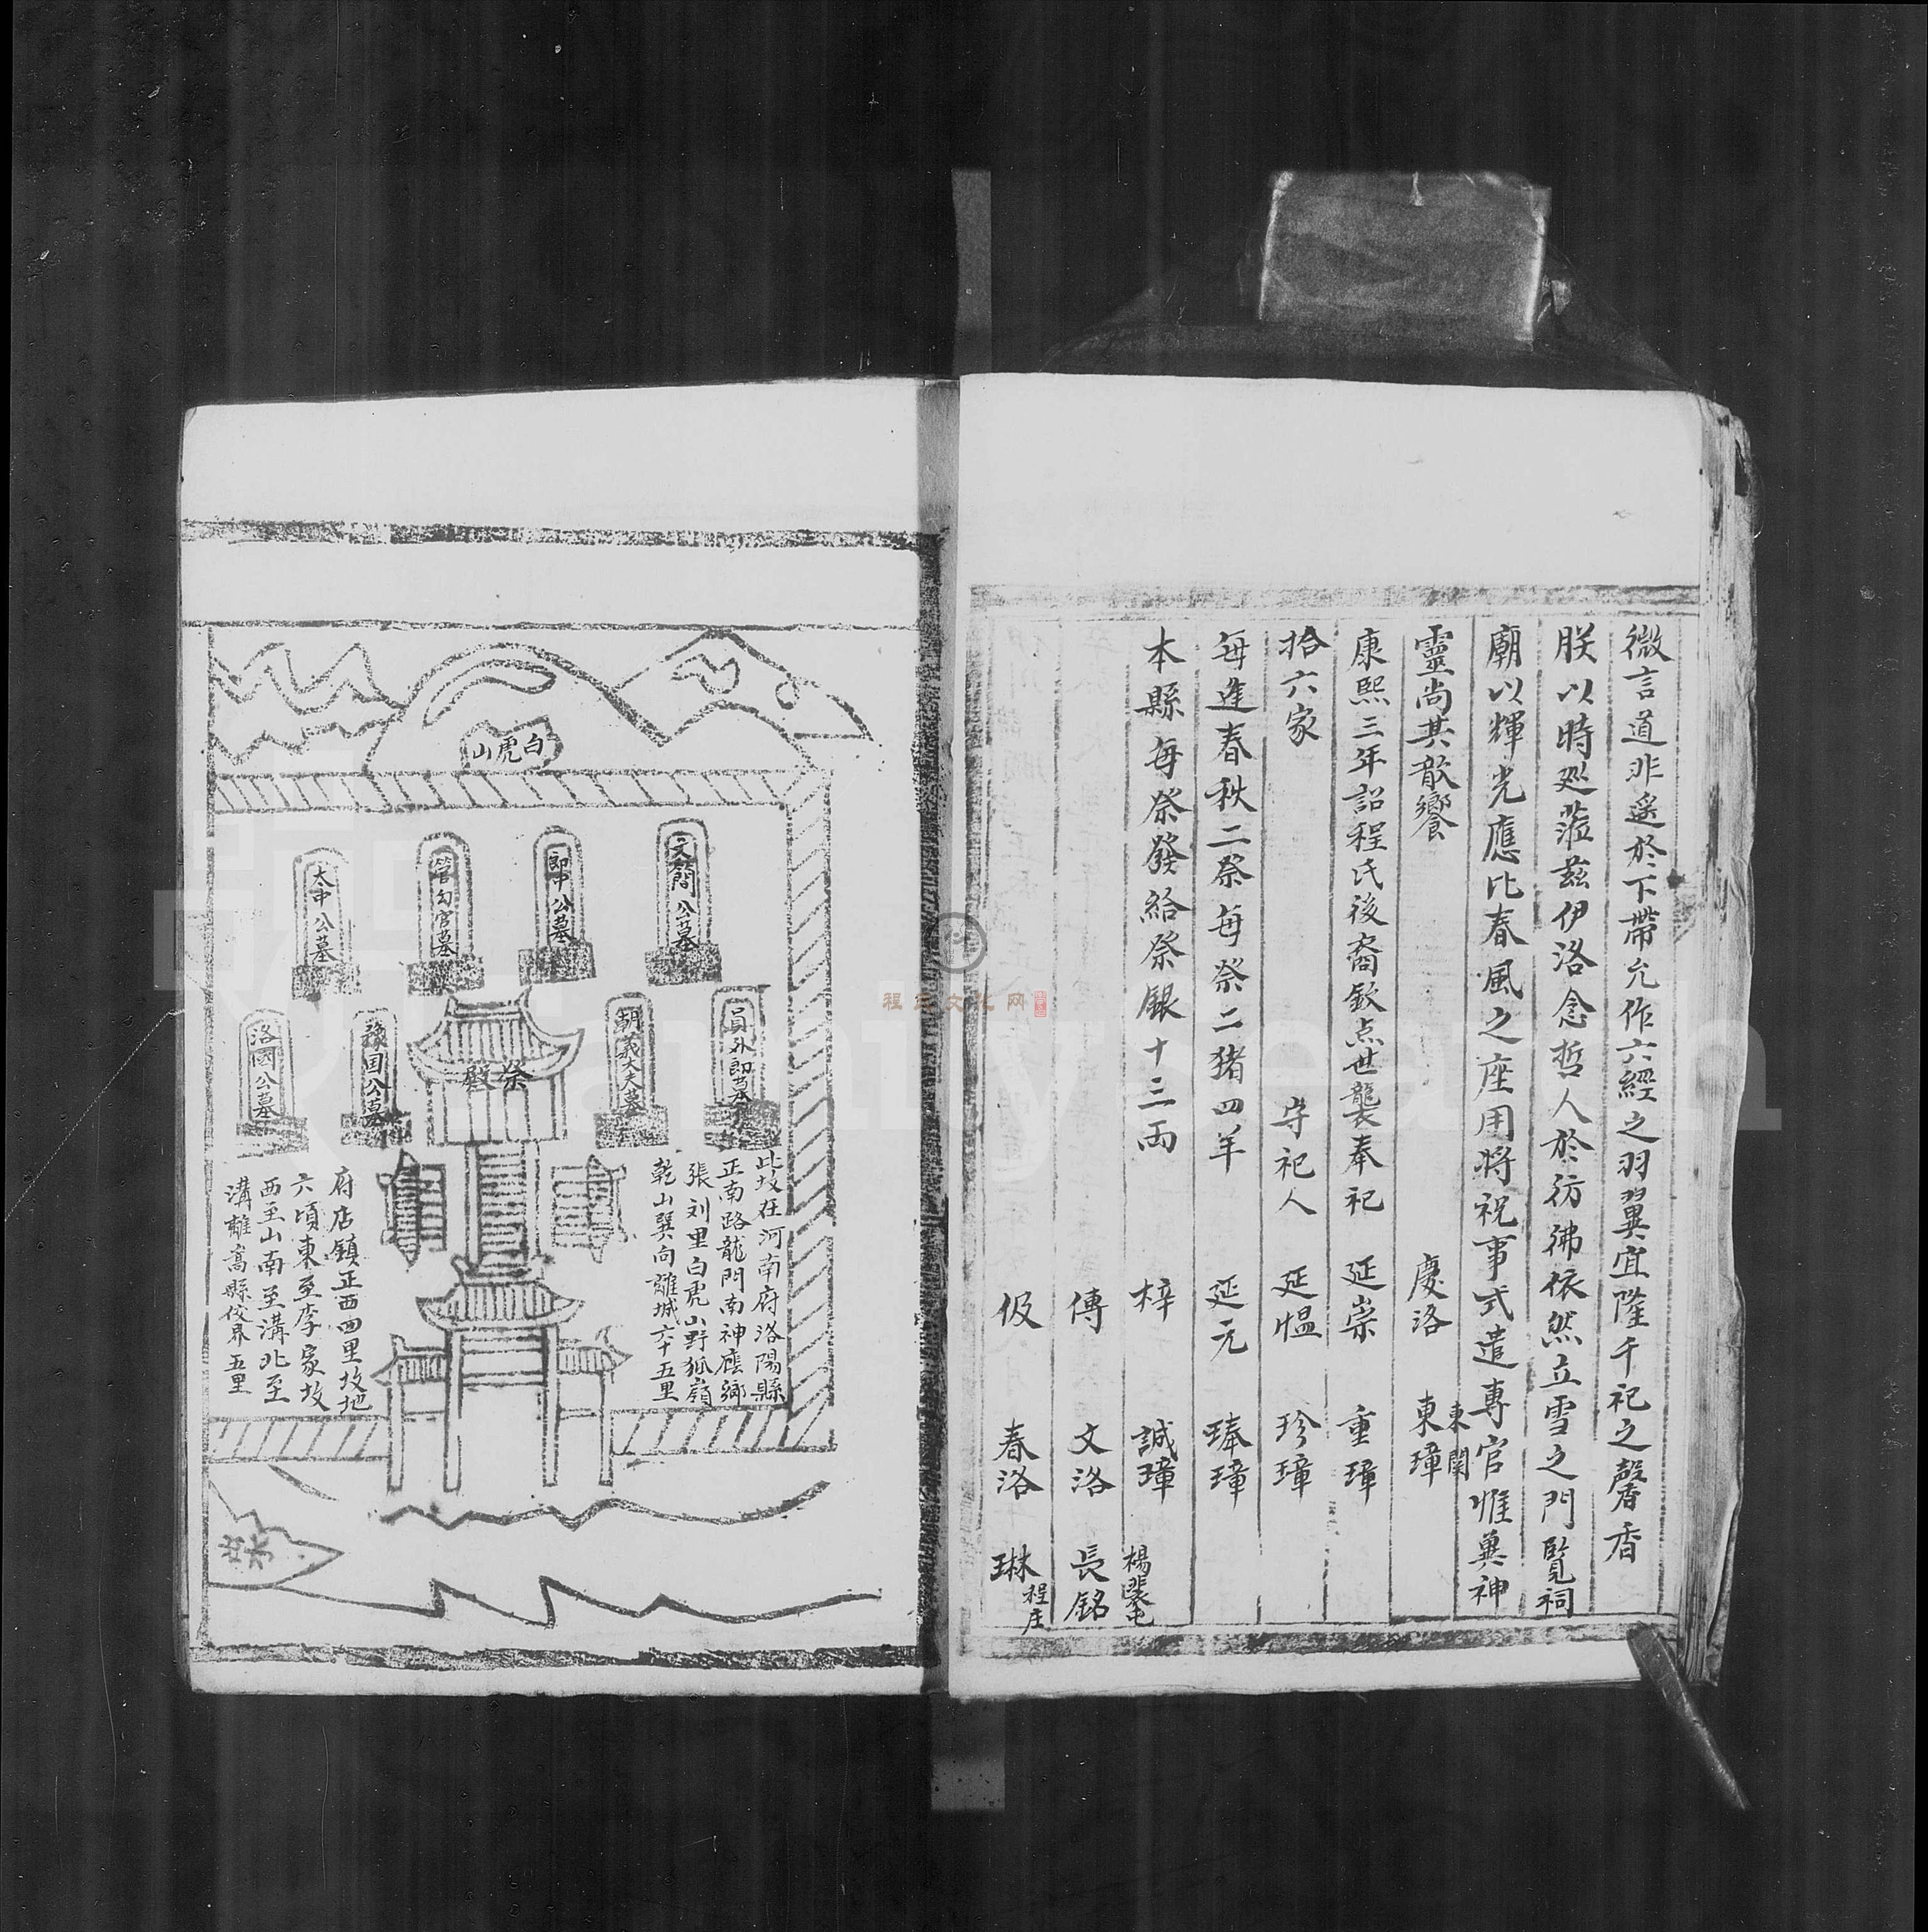 微言道非遥於下帶允作六經之羽翼宜隆千祀之馨香
朕以時廵蒞茲伊洛念哲人於彷彿依然立雪之門覽祠
廟以輝光應比春風之座用將祝事式遣專官惟兾神
靈尚其歆饗 慶洛 東璋 東關
康熙三年詔程氏後裔欽点世襲奉祀 延崇 重璋
拾六家 守祀人 延愠 珍璋
每逢春秋二祭每祭二猪四羊 延元 琫璋
本縣每祭發給祭銀十三两 梓 誠璋 楊裴屯
傳 文洛 長銘
伋 春洛 琳 程庄
白虎山
文簡公墓
郎中公墓
管勾官墓
太中公墓
員外郎墓
朝義大夫墓
祭殿
豫国公墓
洛國公墓
此坟在河南府洛陽縣
正南路龍門南神廕鄉
張刘里白虎山野狐嶺
乾山巽向離城六十五里
府店镇正西四里坟地
六頃東至李家坟
西至山南至溝北至
溝離嵩縣佼界五里
程氏文化网
FamilySearch